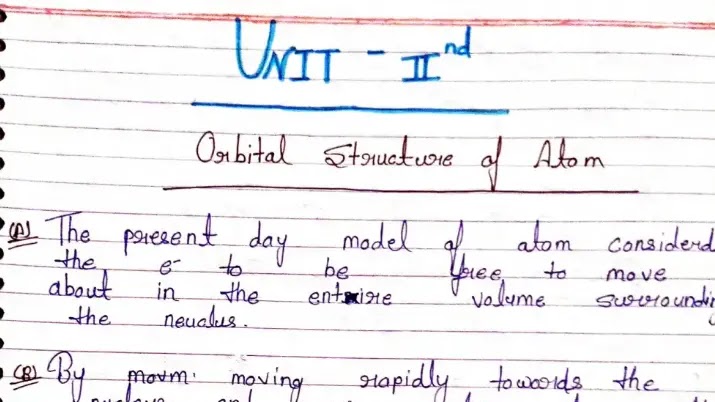 UNIT - II nd
Orbital Structure of Atom
(A) The present day model of atom considerd
the e- to be free to move
about in the entire volume surroundi
the neualus.
(B) By movm. moving rapidly towords the